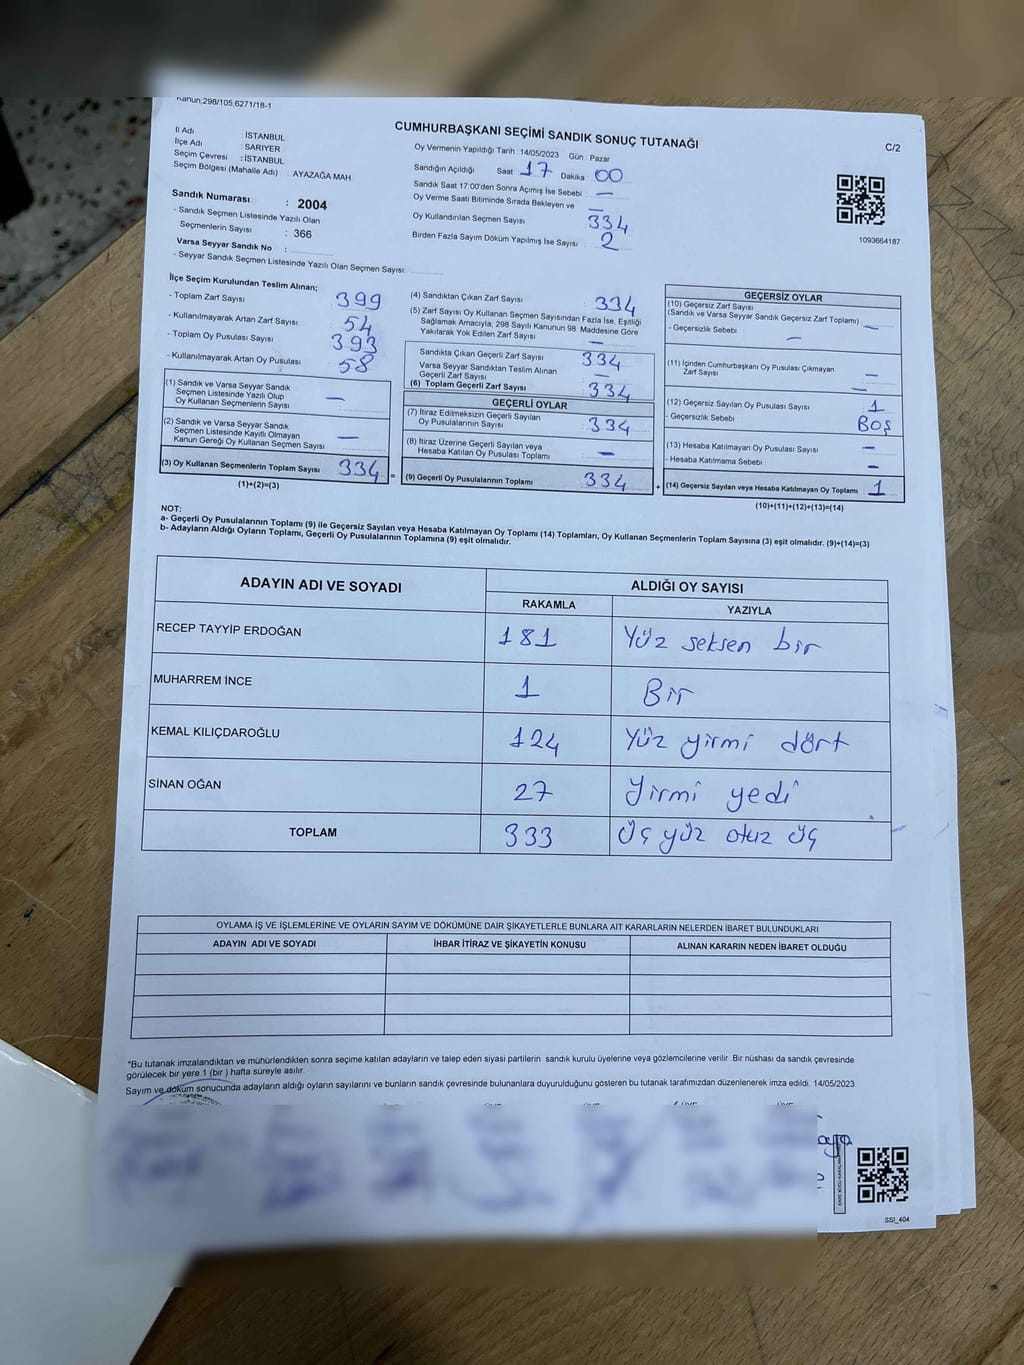 Kanun,298/105,6271/18-1
CUMHURBAŞKANI SEÇİMİ SANDIK SONUÇ TUTANAĞI
C/2
İl Adı : İSTANBUL
İlçe Adı : SARIYER
Seçim Çevresi : İSTANBUL
Seçim Bölgesi (Mahalle Adı) : AYAZAĞA MAH
Sandık Numarası : 2004
- Sandık Seçmen Listesinde Yazılı Olan
Seçmenlerin Sayısı : 366
Varsa Seyyar Sandık No :
- Seyyar Sandık Seçmen Listesinde Yazılı Olan Seçmen Sayısı:
Oy Vermenin Yapıldığı Tarih : 14/05/2023 Gün : Pazar
Sandığın Açıldığı Saat 17 Dakika 00
Sandık Saat 17:00'den Sonra Açımış İse Sebebi —
Oy Verme Saati Bitiminde Sırada Bekleyen ve
Oy Kullandırılan Seçmen Sayısı —
334
Birden Fazla Sayım Döküm Yapılmış İse Sayısı : 2
1093664187
İlçe Seçim Kurulundan Teslim Alınan;
- Toplam Zarf Sayısı 399
- Kullanılmayarak Artan Zarf Sayısı : 54
- Toplam Oy Pusulası Sayısı 393
- Kullanılmayarak Artan Oy Pusulası : 58
(1) Sandık ve Varsa Seyyar Sandık
Seçmen Listesinde Yazılı Olup
Oy Kullanan Seçmenlerin Sayısı : —
(2) Sandık ve Varsa Seyyar Sandık
Seçmen Listesinde Kayıtlı Olmayan
Kanun Gereği Oy Kullanan Seçmen Sayısı : —
(3) Oy Kullanan Seçmenlerin Toplam Sayısı 334 =
(1)+(2)=(3)
(4) Sandıktan Çıkan Zarf Sayısı : 334
(5) Zarf Sayısı Oy Kullanan Seçmen Sayısından Fazla İse, Eşitliği
Sağlamak Amacıyla, 298 Sayılı Kanunun 98. Maddesine Göre
Yakılarak Yok Edilen Zarf Sayısı : —
Sandıkta Çıkan Geçerli Zarf Sayısı : 334
Varsa Seyyar Sandıktan Teslim Alınan
Geçerli Zarf Sayısı : —
(6) Toplam Geçerli Zarf Sayısı : 334
GEÇERLİ OYLAR
(7) İtiraz Edilmeksizin Geçerli Sayılan
Oy Pusulalarının Sayısı : 334
(8) İtiraz Üzerine Geçerli Sayılan veya
Hesaba Katılan Oy Pusulası Toplamı : —
(9) Geçerli Oy Pusulalarının Toplamı : 334 +
GEÇERSİZ OYLAR
(10) Geçersiz Zarf Sayısı
(Sandık ve Varsa Seyyar Sandık Geçersiz Zarf Toplamı) : —
- Geçersizlik Sebebi : —
(11) İçinden Cumhurbaşkanı Oy Pusulası Çıkmayan
Zarf Sayısı : —
—
(12) Geçersiz Sayılan Oy Pusulası Sayısı : 1
- Geçersizlik Sebebi : Boş
(13) Hesaba Katılmayan Oy Pusulası Sayısı : —
- Hesaba Katılmama Sebebi : —
(14) Geçersiz Sayılan veya Hesaba Katılmayan Oy Toplamı : 1
(10)+(11)+(12)+(13)=(14)
NOT:
a- Geçerli Oy Pusulalarının Toplamı (9) ile Geçersiz Sayılan veya Hesaba Katılmayan Oy Toplamı (14) Toplamları, Oy Kullanan Seçmenlerin Toplam Sayısına (3) eşit olmalıdır. (9)+(14)=(3)
b- Adayların Aldığı Oyların Toplamı, Geçerli Oy Pusulalarının Toplamına (9) eşit olmalıdır.
ADAYIN ADI VE SOYADI ALDIĞI OY SAYISI
RAKAMLA YAZIYLA
RECEP TAYYİP ERDOĞAN 181 Yüz seksen bir
MUHARREM İNCE 1 Bir
KEMAL KILIÇDAROĞLU 124 Yüz yirmi dört
SİNAN OĞAN 27 Yirmi yedi
TOPLAM 333 Üç yüz otuz üç
OYLAMA İŞ VE İŞLEMLERİNE VE OYLARIN SAYIM VE DÖKÜMÜNE DAİR ŞİKAYETLERLE BUNLARA AİT KARARLARIN NELERDEN İBARET BULUNDUKLARI
ADAYIN ADI VE SOYADI İHBAR İTİRAZ VE ŞİKAYETİN KONUSU ALINAN KARARIN NEDEN İBARET OLDUĞU
*Bu tutanak imzalandıktan ve mühürlendikten sonra seçime katılan adayların ve talep eden siyasi partilerin sandık kurulu üyelerine veya gözlemcilerine verilir. Bir nüshası da sandık çevresinde
görülecek bir yere 1 (bir ) hafta süreyle asılır.
Sayım ve döküm sonucunda adayların aldığı oyların sayılarını ve bunların sandık çevresinde bulunanlara duyurulduğunu gösteren bu tutanak tarafımızdan düzenlenerek imza edildi. 14/05/2023
SSI_404